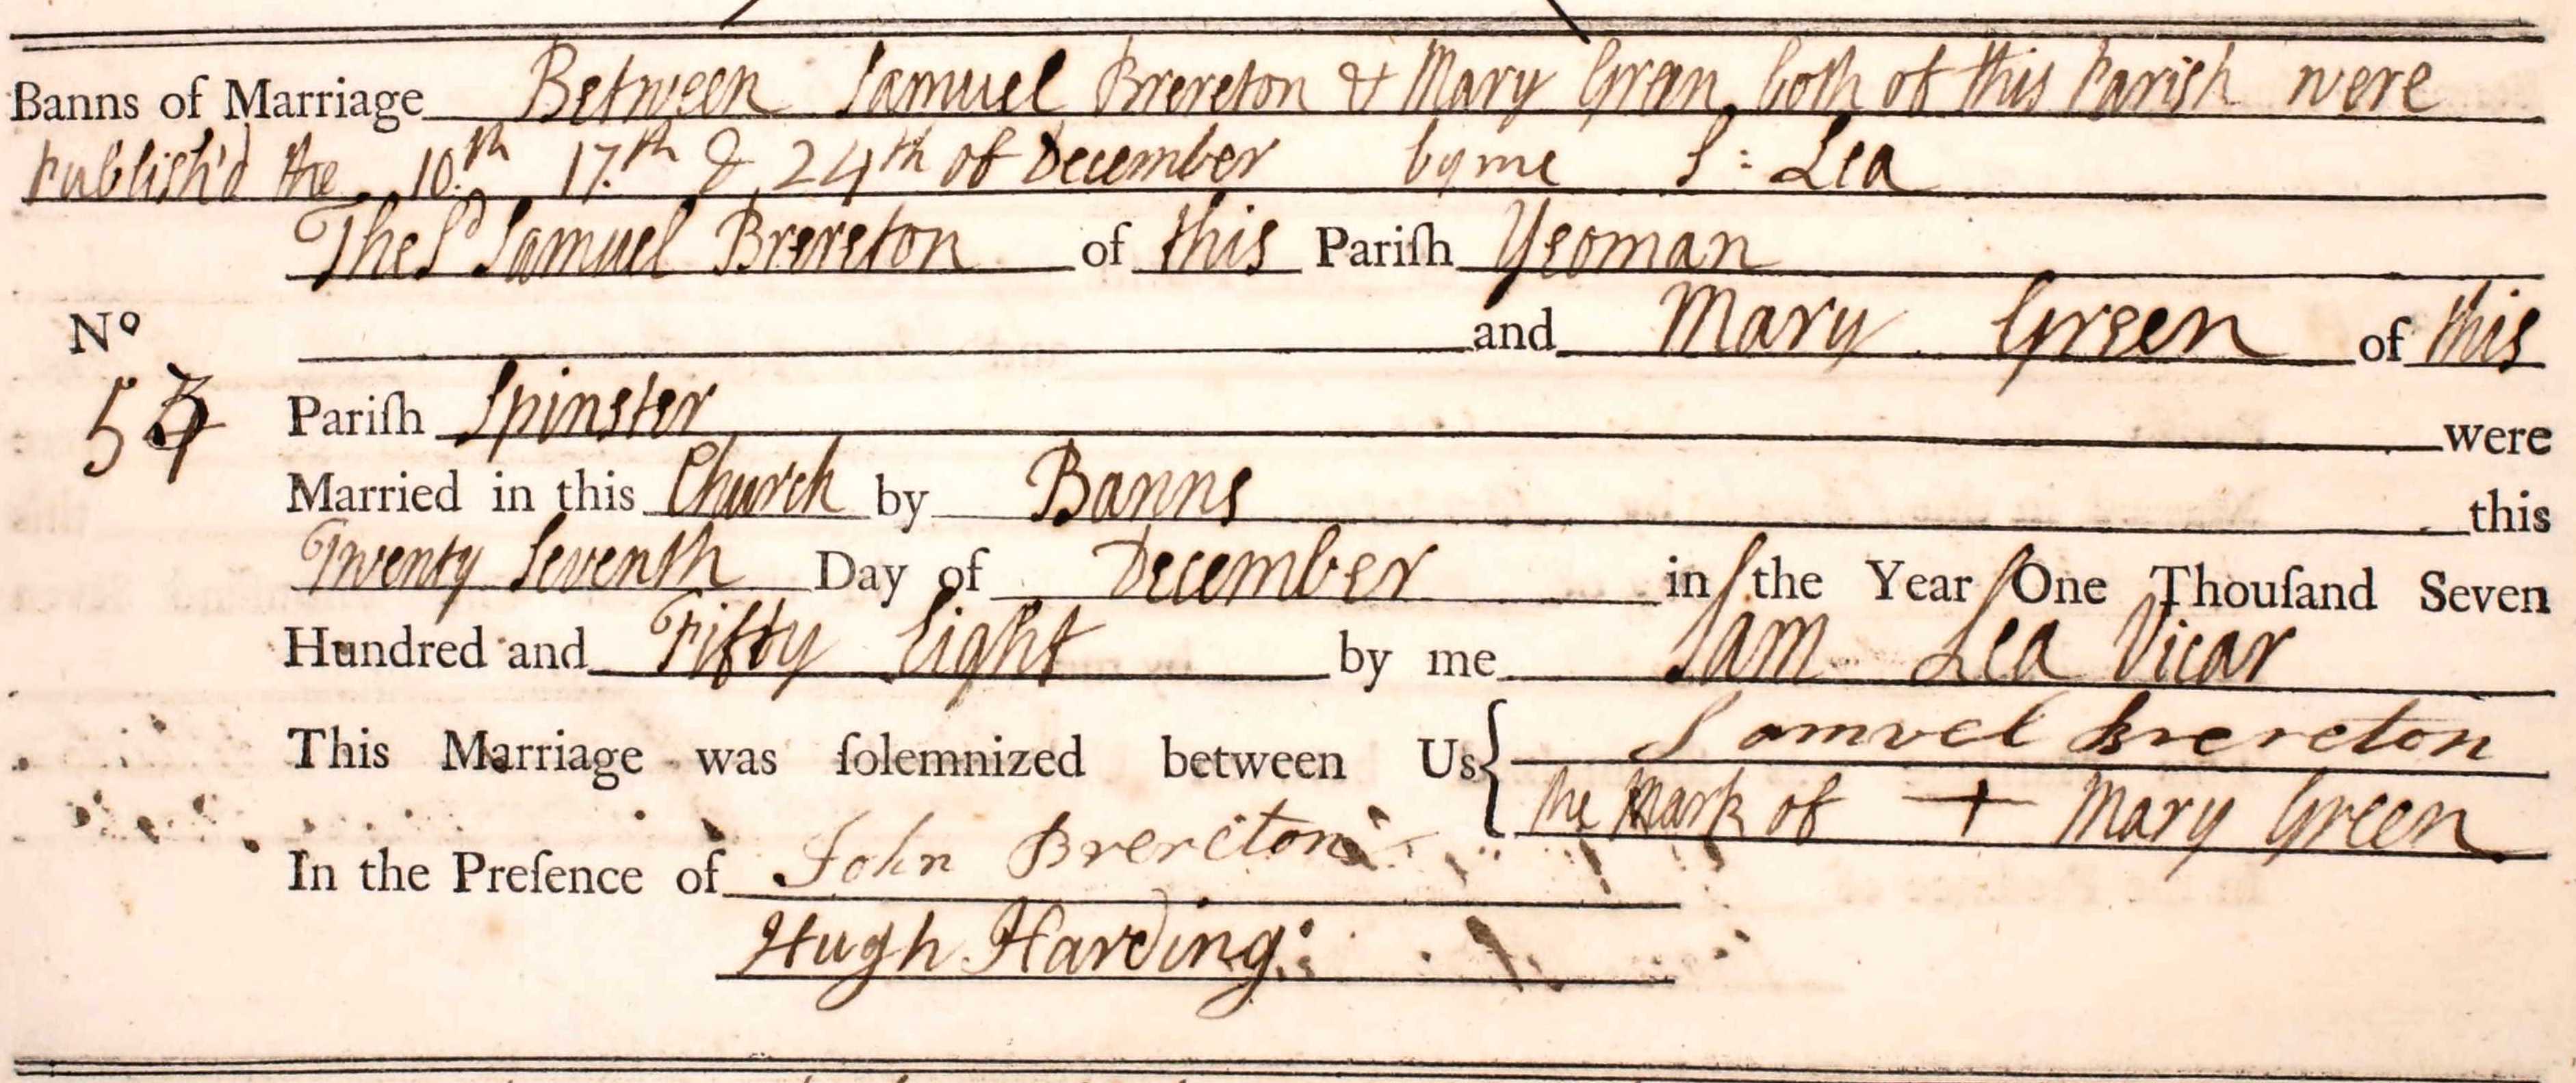 Banns of Marriage Between Samuel Brereton & Mary Green both of this Parish were
Publish'd the 10.th 17.th & 24th of December by me S: Lea
The Sd Samuel Brereton of this Pariſh Yeoman
No and Mary Green of this
Pariſh Spinster were
Married in this Church by Banns this
Twenty Seventh Day of December in the Year One Thouſand Seven
Hundred and Fifty Eight by me Sam Lea Vicar
This Marriage was ſolemnized between Us { Samuel Brereton
the Mark of + Mary Green
In the Preſence of John Brereton
Hugh Harding